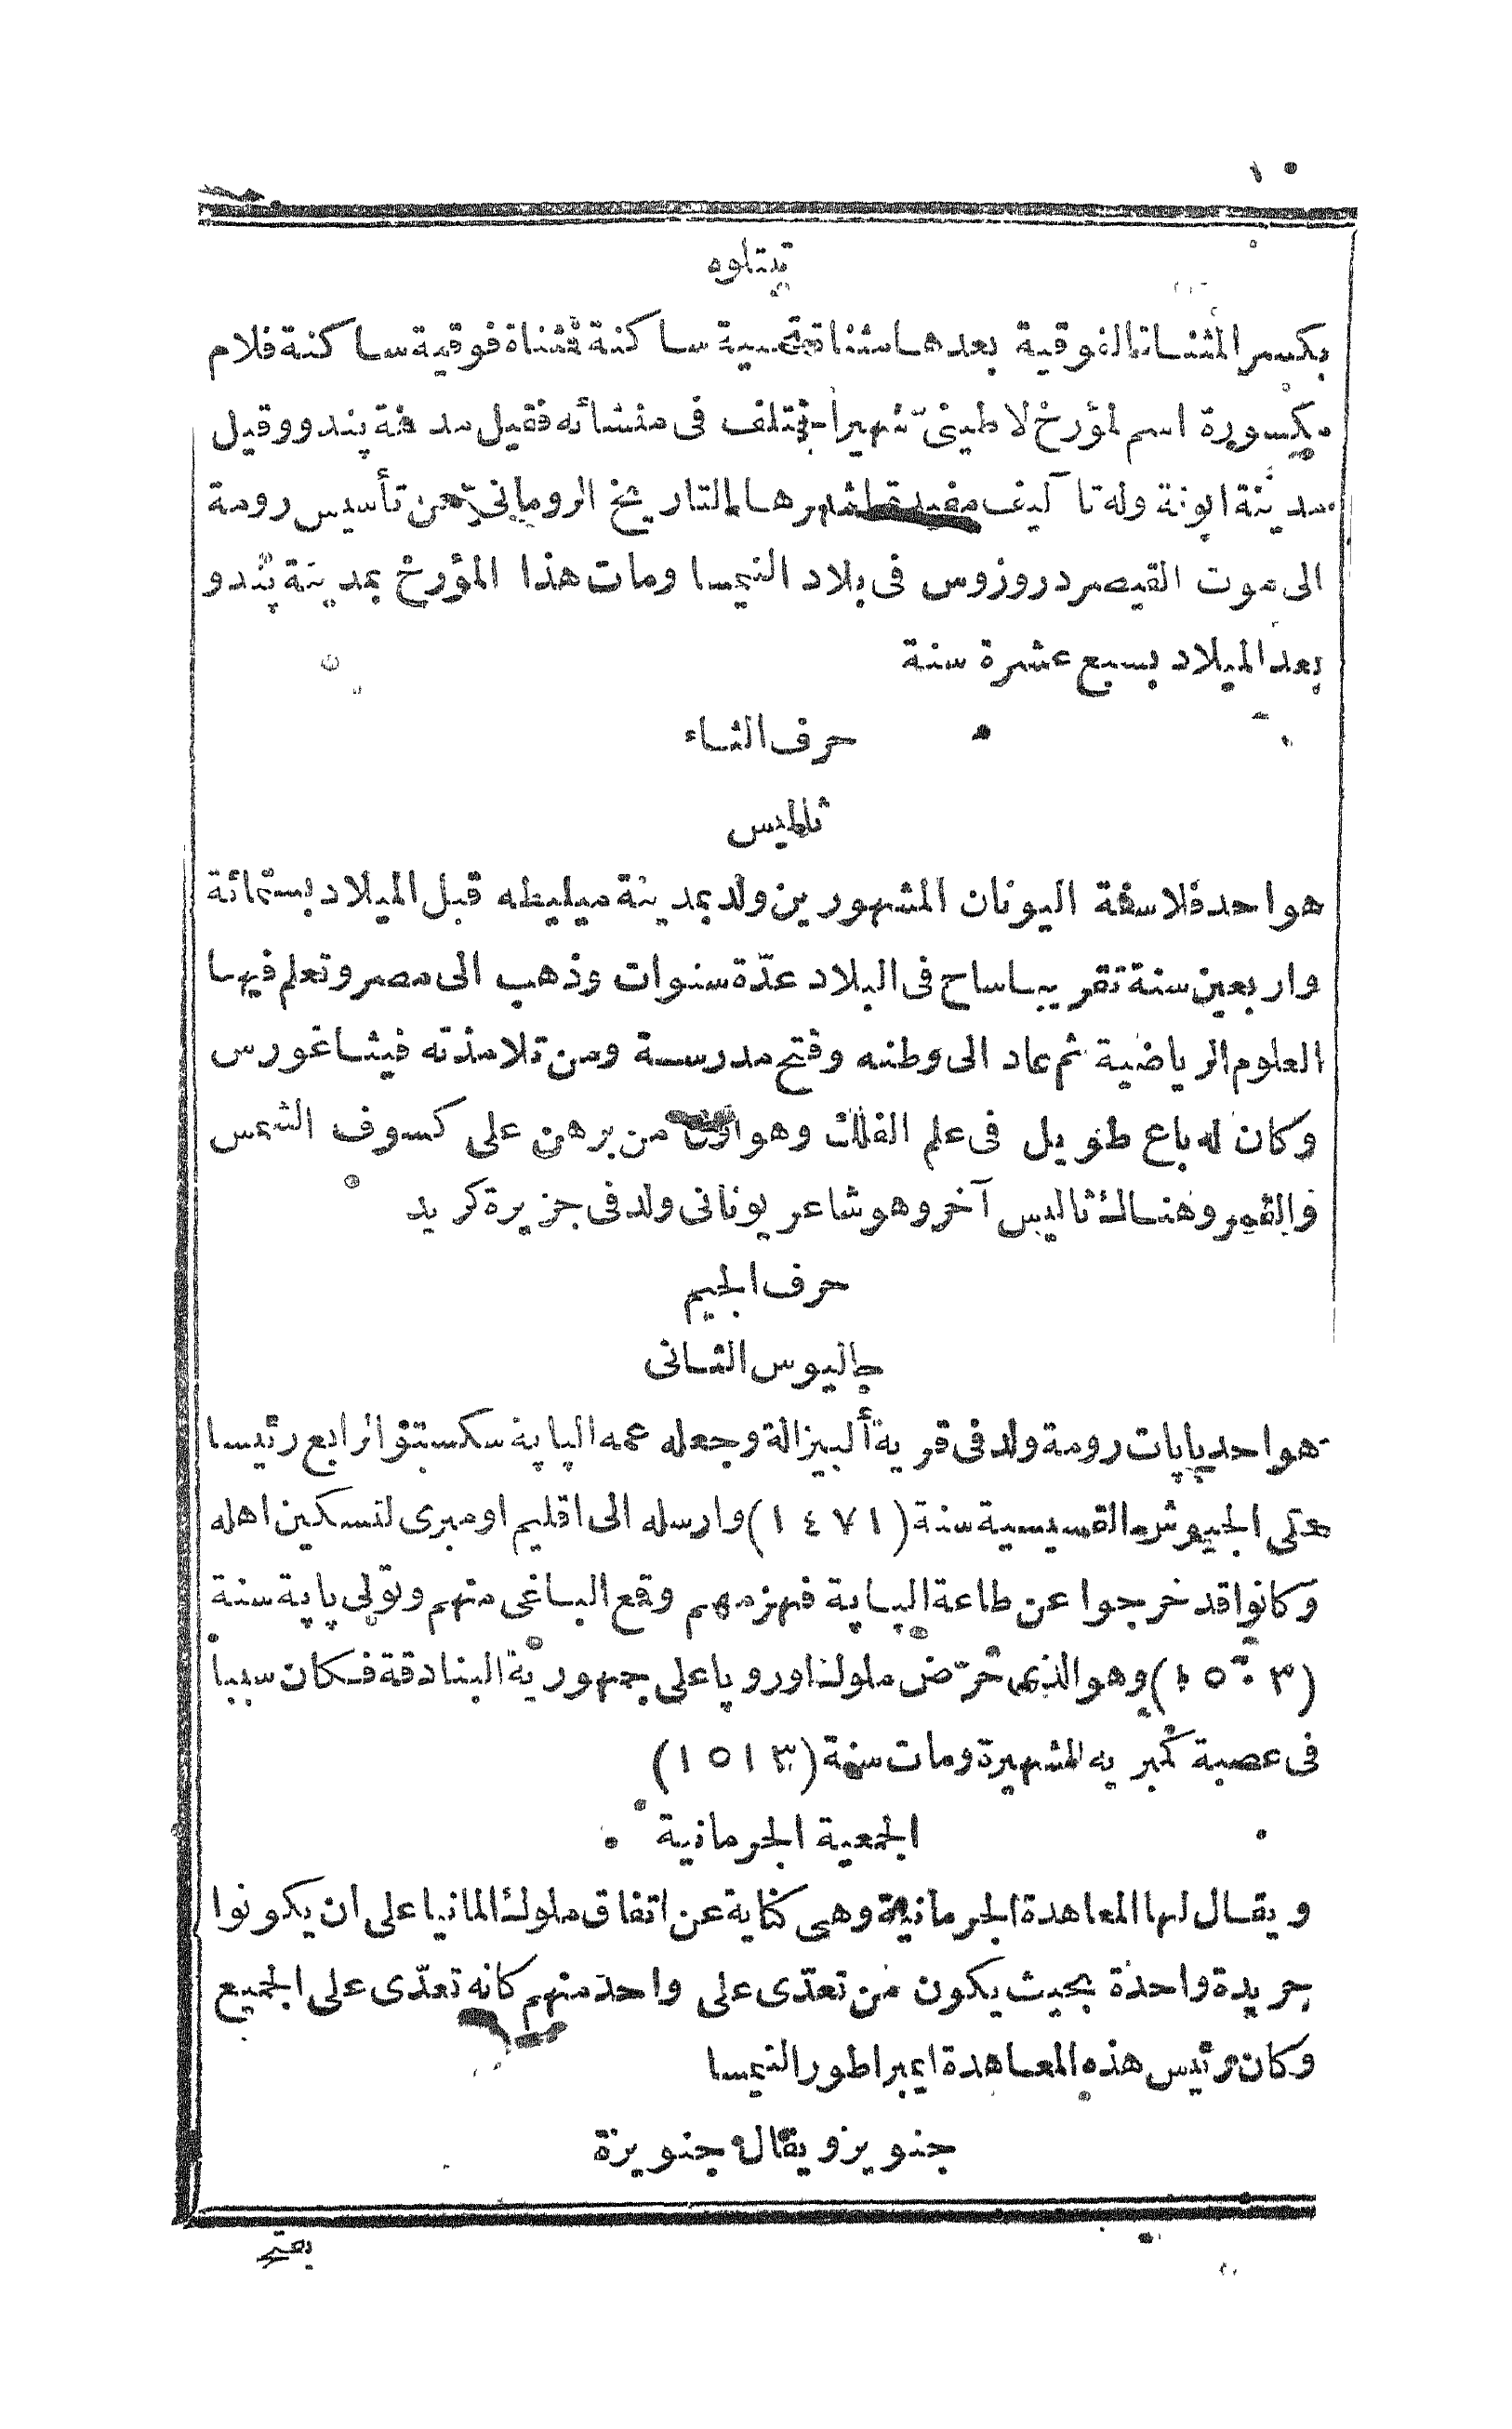 ١٠
تيتلوه
بكسر المثناة الفوقية بعدها مثناة تحتية ساكنة فمثناة فوقية ساكنة فلام
مكسورة اسم لمؤرخ لاطينى شهير اختلف فى منشائه فقيل مدينة پندو وقيل
مدينة ابونة وله تآليف مفيدة اشهرها التاريخ الرومانى من تأسيس رومة
الى موت القيصر دروزوس فى بلاد النيمسا ومات هذا المؤرخ بمدينة پندو
بعد الميلاد بسبع عشرة سنة
حرف الثاء
ثاليس
هو احد فلاسفة اليونان المشهورين ولد بمدينة ميليطه قبل الميلاد بستمائة
واربعين سنة تقريبا ساح فى البلاد عدّة سنوات وذهب الى مصر وتعلم فيها
العلوم الرياضية ثم عاد الى وطنه وفتح مدرسة ومن تلامذته فيثاغورس
وكان له باع طويل فى علم الفلك وهو اول من برهن على كسوف الشمس
والقمر وهناك ثاليس آخر وهو شاعر يونانى ولد فى جزيرة كريد
حرف الجيم
جاليوس الثانى
هو احد پاپات رومة ولد فى قرية ألبيزالة وجعله عمه الپاپة سكستو الرابع رئيسا
على الجيوش القسيسية سنة (١٤٧١) وارسله الى اقليم اومبرى لتسكين اهله
وكانوا قد خرجوا عن طاعة الپاپة فهزمهم وقمع الباغى منهم وتولى پاپة سنة
(١٥٠٣) وهو الذى حرّض ملوك اوروپا على جمهورية البنادقة فكان سببا
فى عصبة كمبريه الشهيرة ومات سنة (١٥١٣)
الجمعية الجرمانية
ويقال لها المعاهدة الجرمانية وهى كناية عن اتفاق ملوك المانيا على ان يكونوا
جريدة واحدة بحيث يكون من تعدّى على واحد منهم كانه تعدّى على الجميع
وكان رئيس هذه المعاهدة ايمبراطور النيمسا
جنويز ويقال جنويزة
بفتح